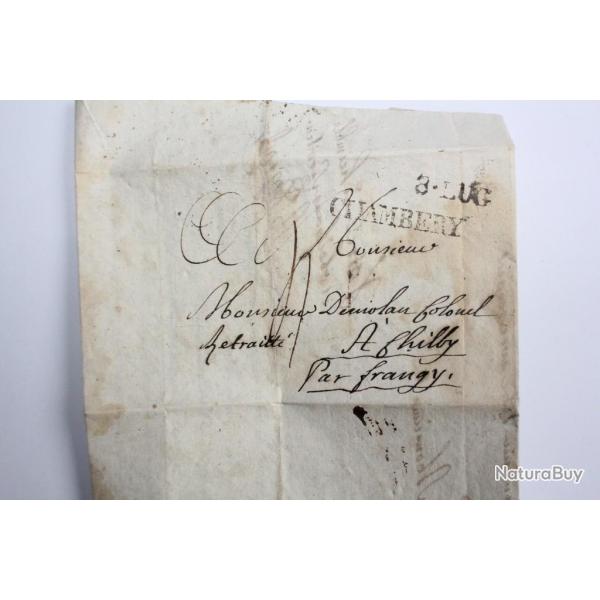 8·LUG
CHAMBERY
Monsieur
Monsieur Dimolan Colonel
Retraitté
A Chilly
Par frangy.
NaturaBuy